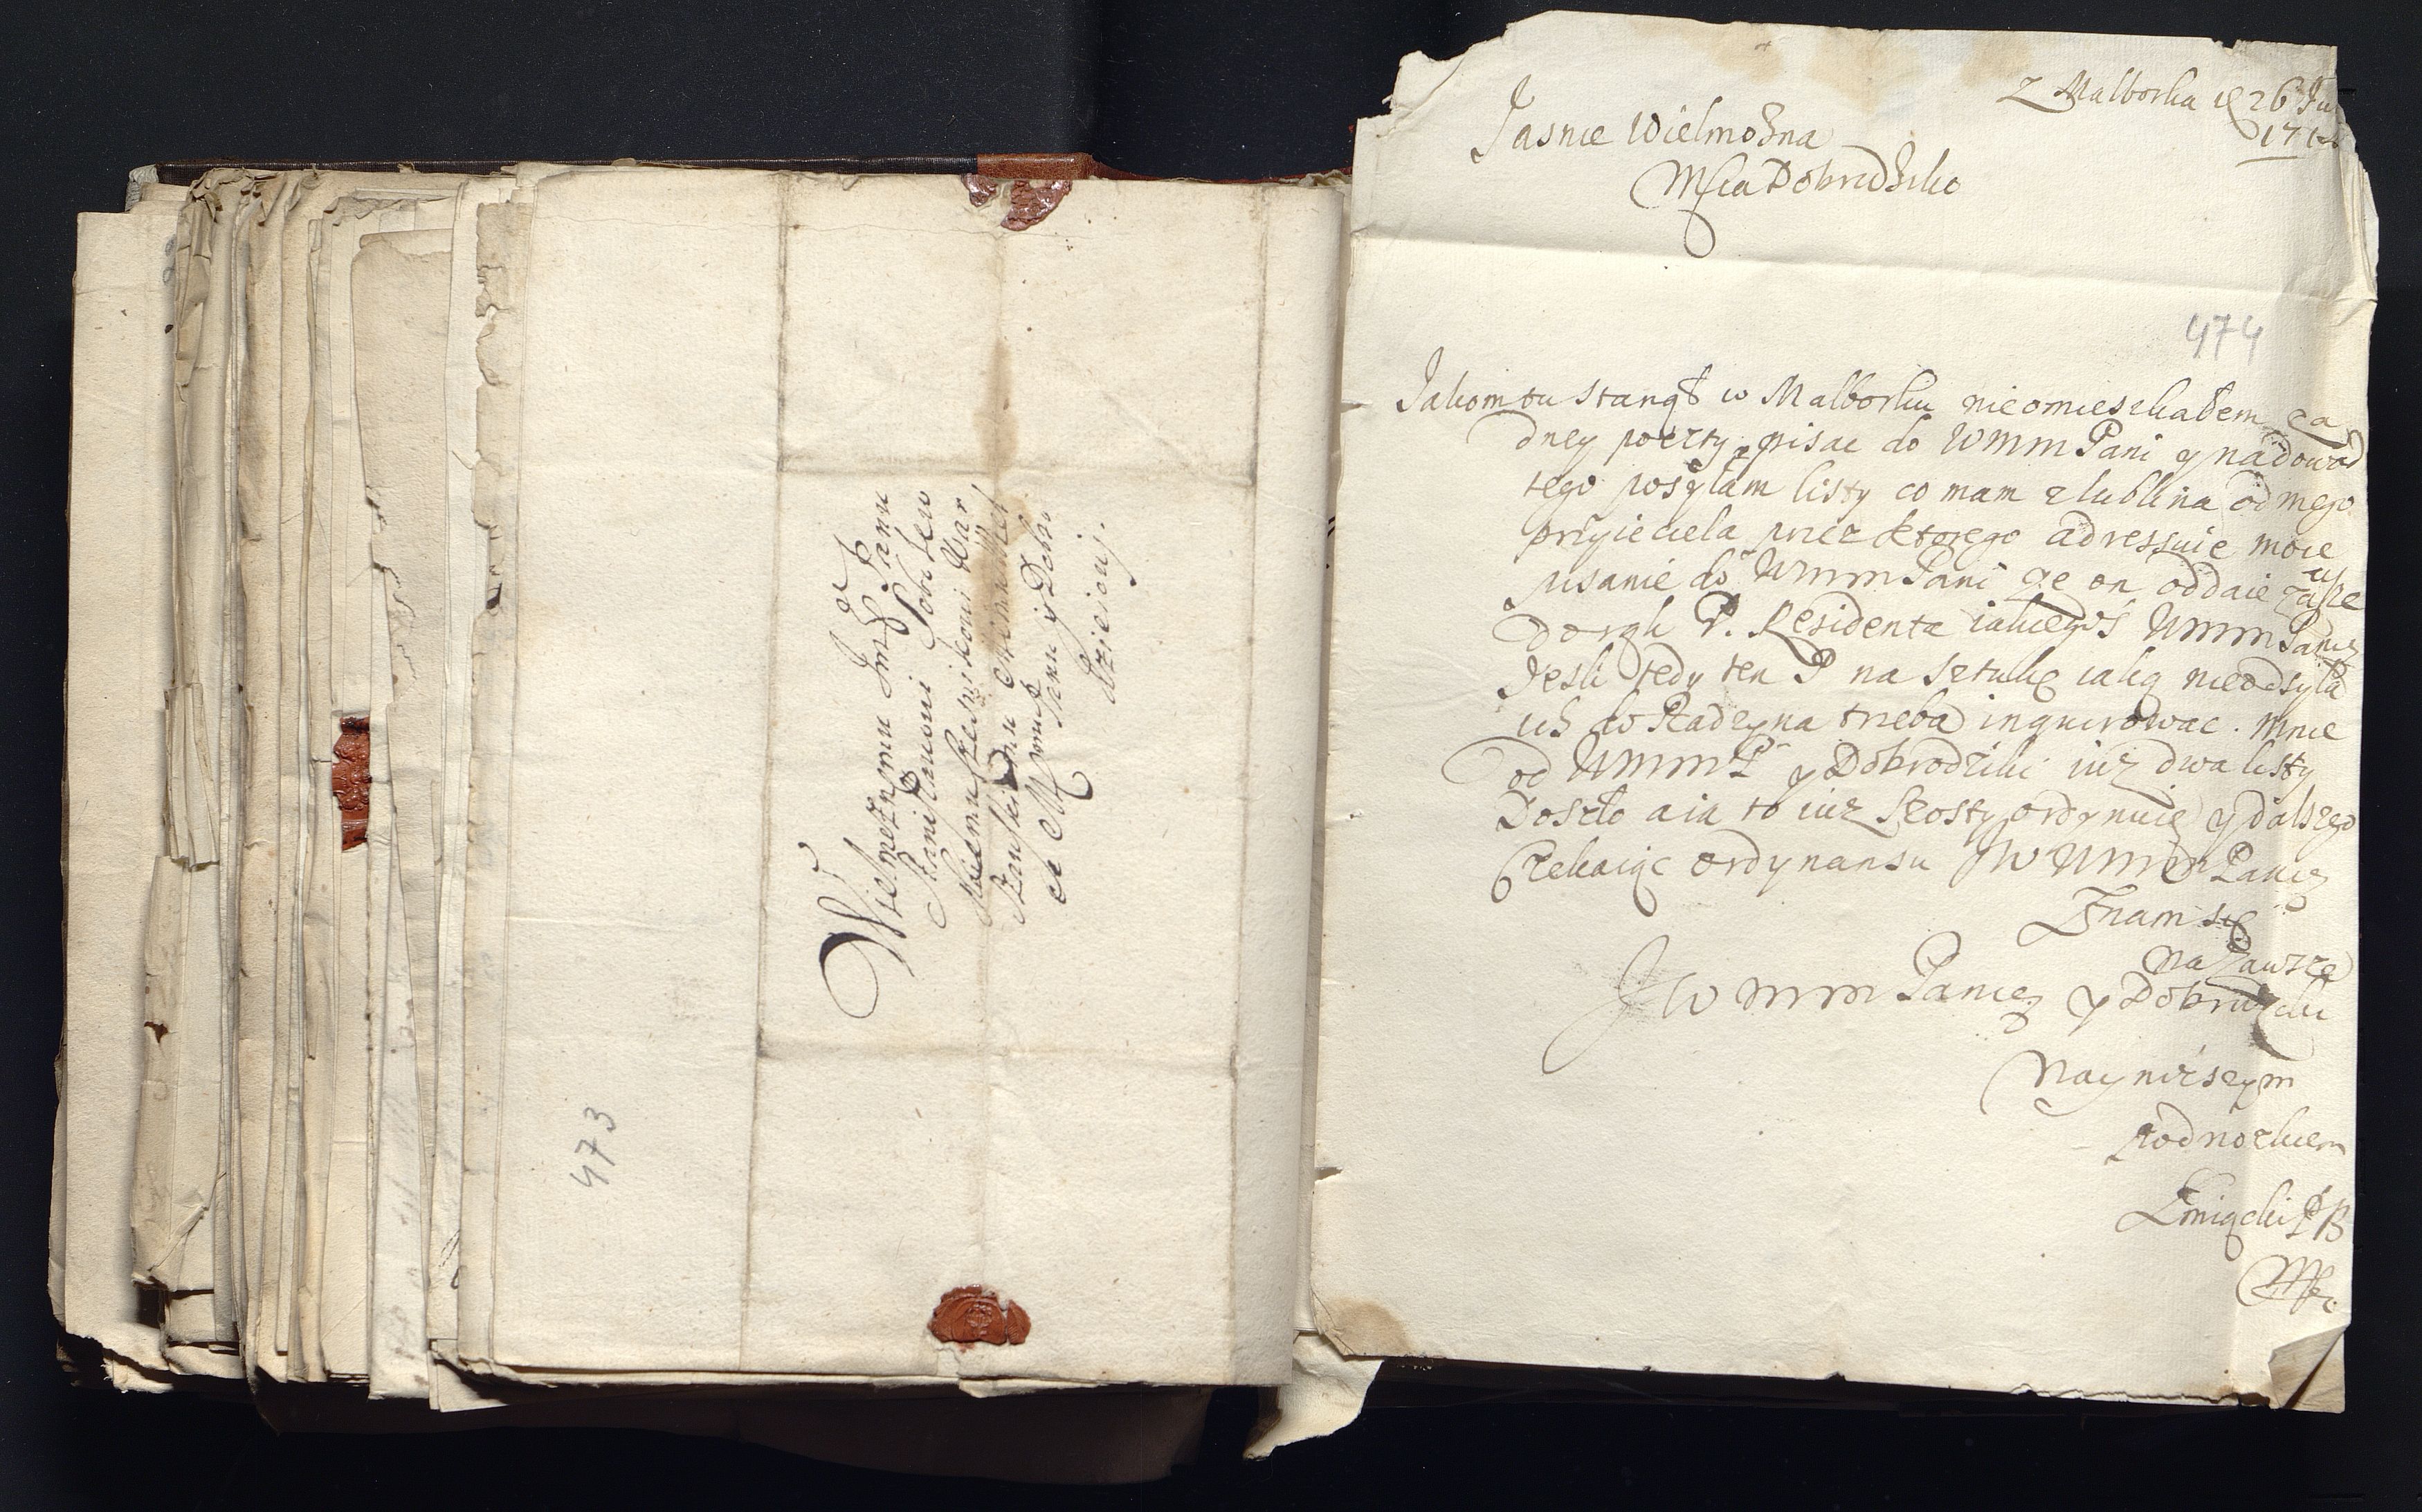 473
Wielmożnemu Jmć Panu
Stanisławowi
Panu y Dobro
dzieiowi.
Z Malborka 26
Jasnie Wielmożna
Mscia Dobrodziko
474
Jakom tu stanął w Malborku nieomieszkałem za
dney poczty pisac do WMM Pani y nadowod
tego posyłam listy co mam z lublina od mego
przyieciela przez ktorego adressuie moie
pisanie do WMM Pani ze on oddaie
do rąk P. Residenta iakiegos WMM Paniey
Jesli tedy ten P na sztukę iaką nieodsyła
ich do Radzyna trzeba inquirowac. Mnie
od WMMP y Dobrodziki iuz dwa listy
Doszło a ia to iuz szosty ordynuię y dalszego
Czekaiąc ordynansu JW WMM Paniey
Znam się
na zawsze
JW WMM Paniey y Dobrodziki
Nayniższym
Podnożkiem